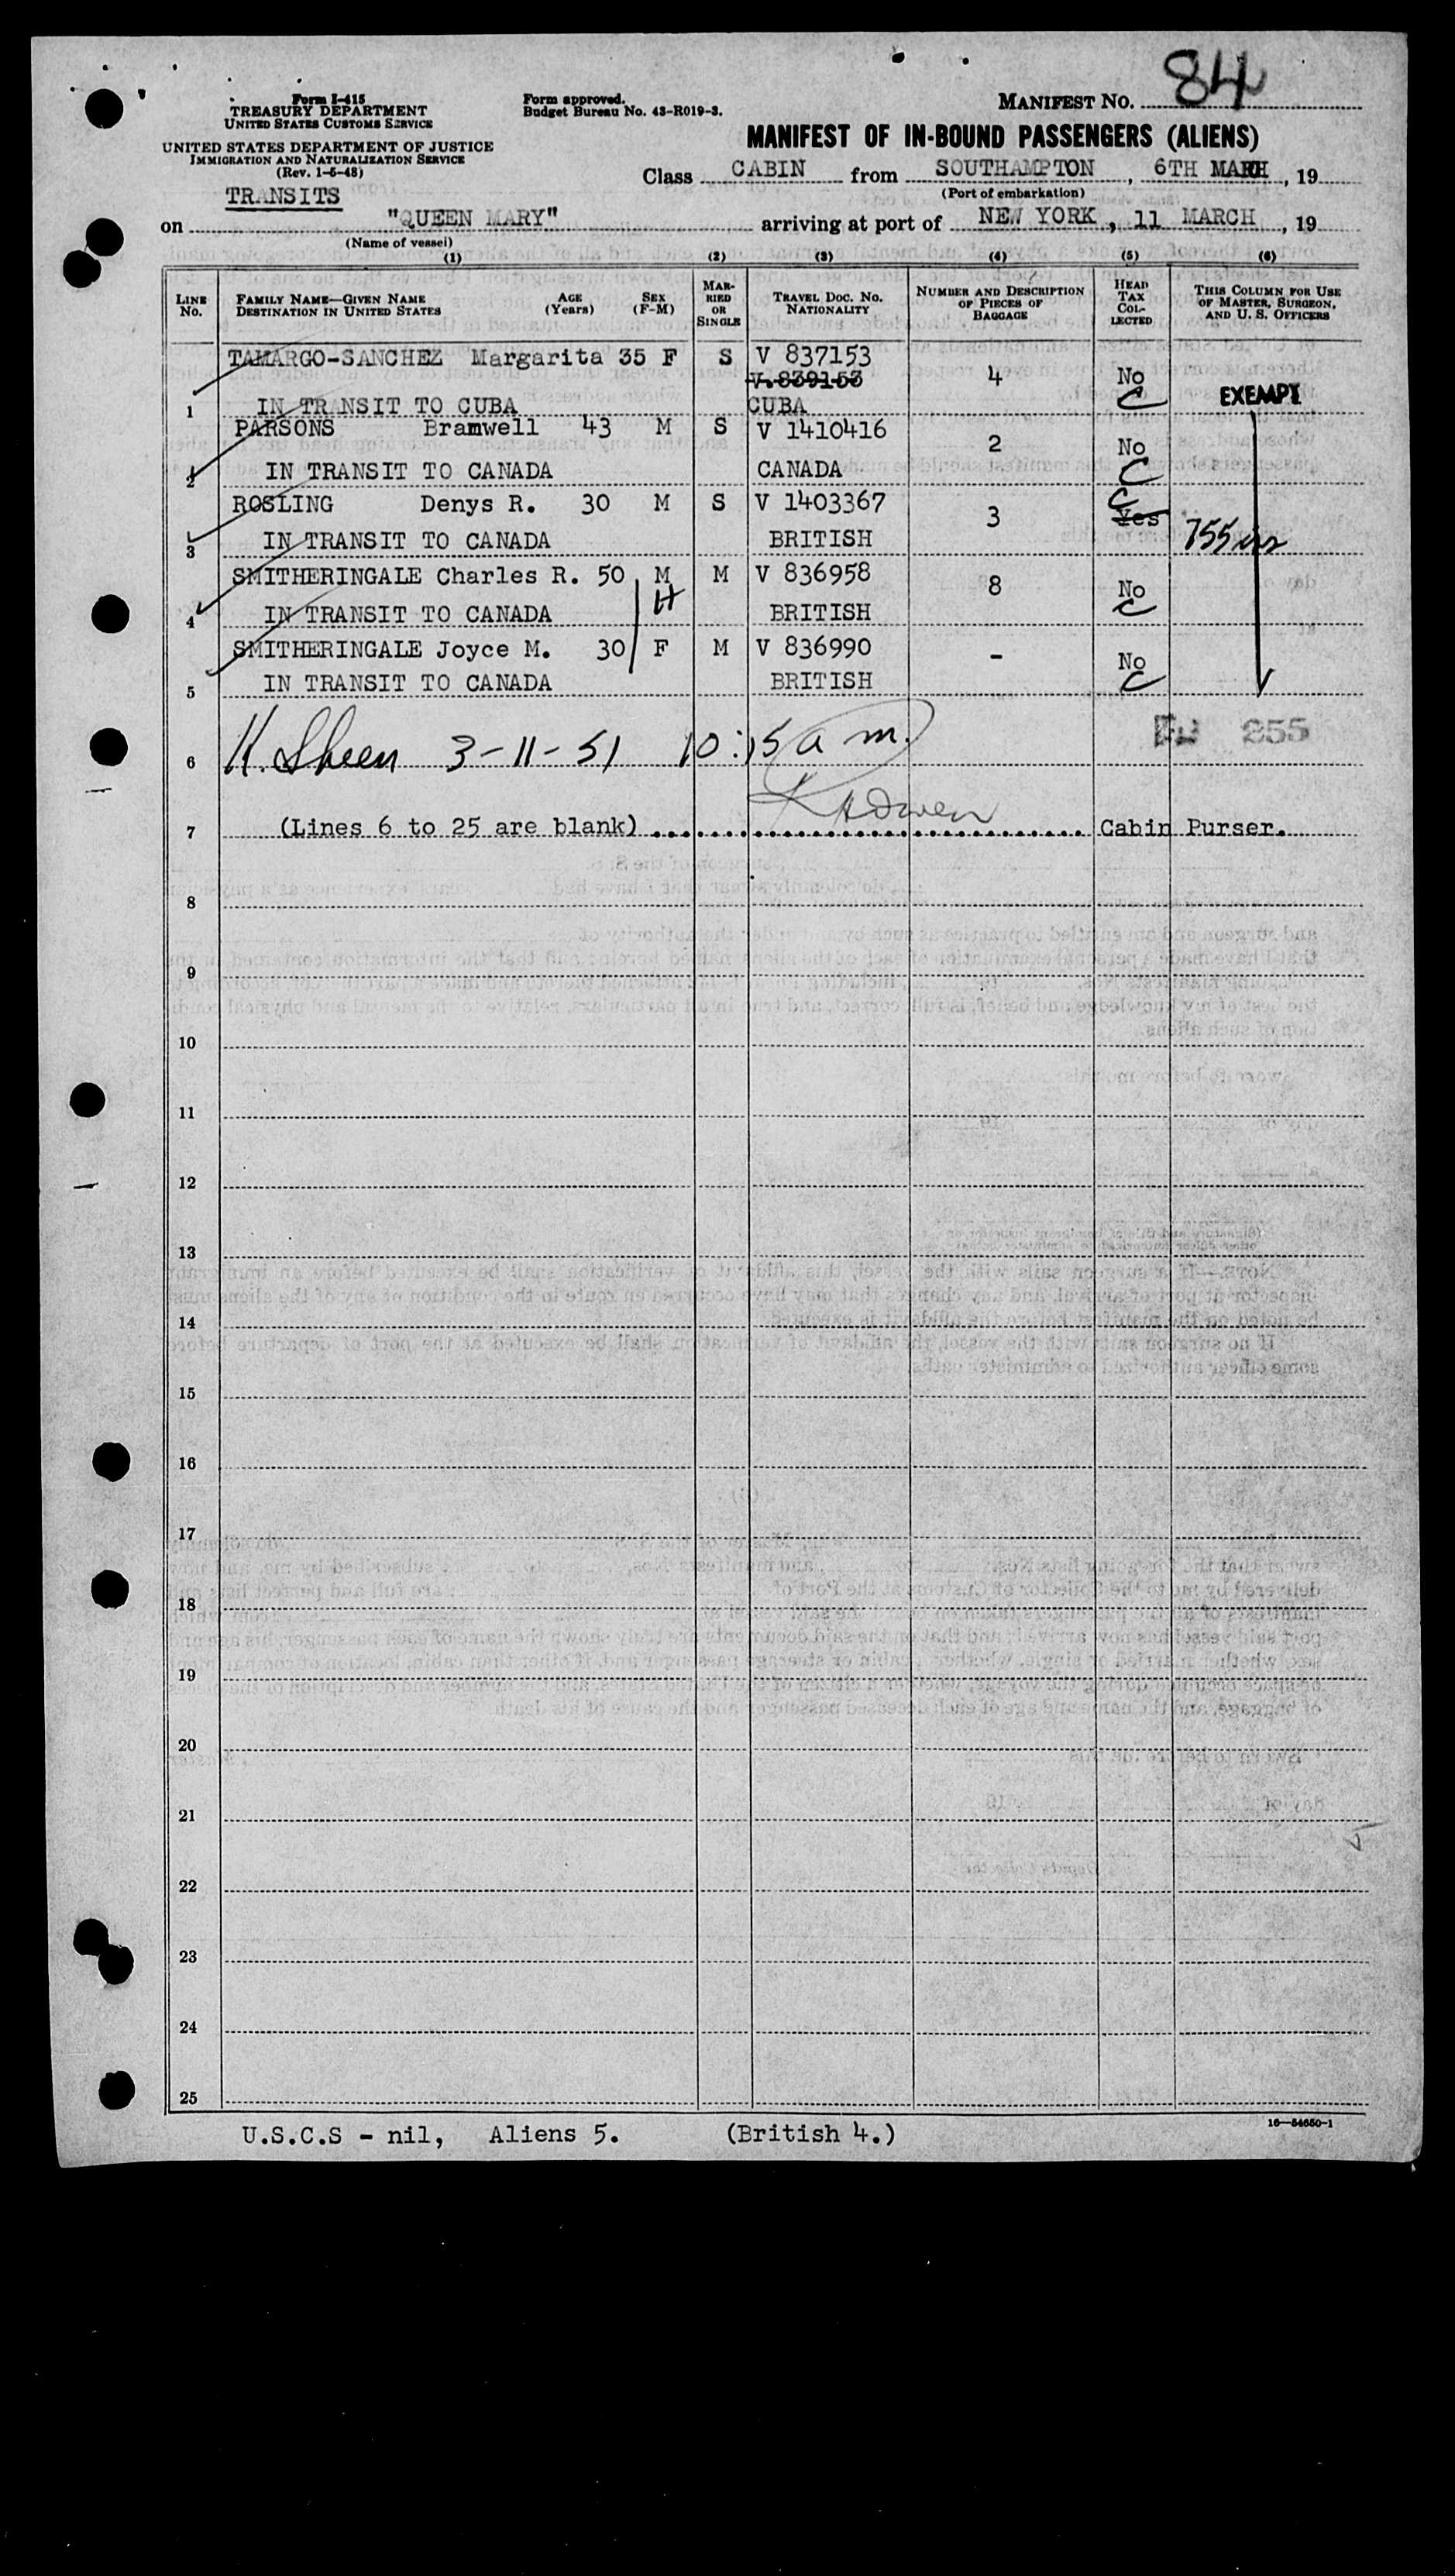 84
Form I-415
TREASURY DEPARTMENT
UNITED STATES CUSTOMS SERVICE
Form approved.
Budget Bureau No. 43-R019-3.
MANIFEST NO.
UNITED STATES DEPARTMENT OF JUSTICE
IMMIGRATION AND NATURALIZATION SERVICE
(Rev. 1-5-48)
MANIFEST OF IN-BOUND PASSENGERS (ALIENS)
TRANSITS
Class CABIN from SOUTHAMPTON, 6TH MARCH, 19
(Port of embarkation)
on "QUEEN MARY" arriving at port of NEW YORK, 11 MARCH, 19
(Name of vessel)
(1) (2) (3) (4) (5) (6)
LINE NO. FAMILY NAME—GIVEN NAME DESTINATION IN UNITED STATES AGE (Years) SEX (F-M) MARRIED OR SINGLE TRAVEL DOC. NO. NATIONALITY NUMBER AND DESCRIPTION OF PIECES OF BAGGAGE HEAD TAX COLLECTED THIS COLUMN FOR USE OF MASTER, SURGEON, AND U. S. OFFICERS
TAMARGO-SANCHEZ Margarita 35 F S V 837153
V.839153 4 No
1 IN TRANSIT TO CUBA CUBA C EXEMPT
PARSONS Bramwell 43 M S V 1410416
2 No
2 IN TRANSIT TO CANADA CANADA C
ROSLING Denys R. 30 M S V 1403367 C
3 Yes
3 IN TRANSIT TO CANADA BRITISH
SMITHERINGALE Charles R. 50 M M V 836958
H 8 No
4 IN TRANSIT TO CANADA BRITISH C
SMITHERINGALE Joyce M. 30 F M V 836990
- No
5 IN TRANSIT TO CANADA BRITISH C
255
6 K. Sheen 3-11-51 10:15 a m.
7 (Lines 6 to 25 are blank) Cabin Purser.
8
9
10
11
12
13
14
15
16
17
18
19
20
21
22
23
24
25
16—54650-1
U.S.C.S - nil, Aliens 5. (British 4.)